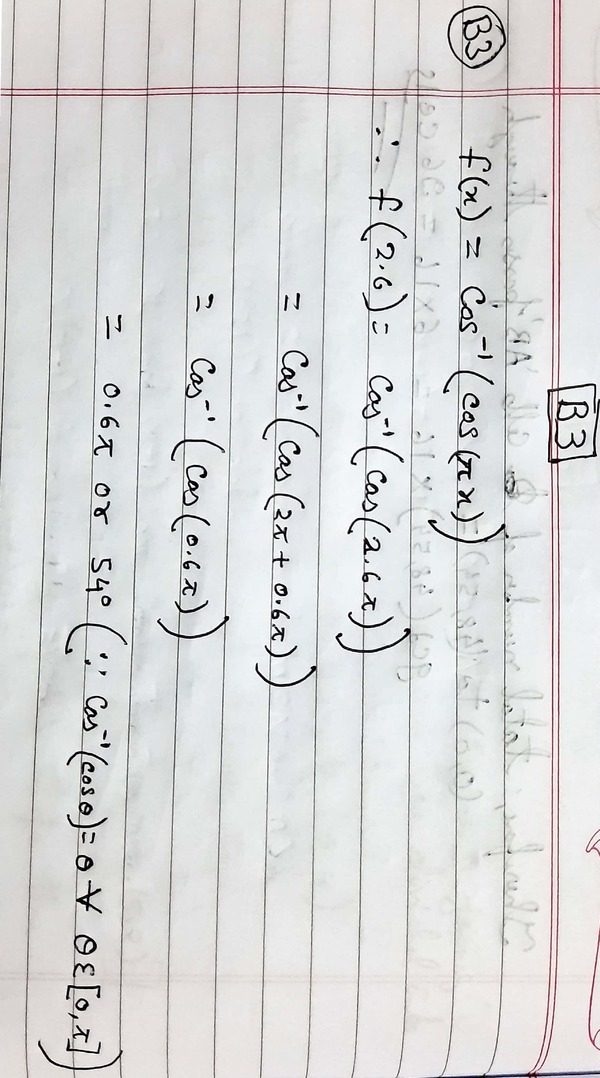 B3
B3
f(x) = Cos⁻¹(cos(πx))
∴ f(2.6) = Cos⁻¹(cos(2.6π))
= Cos⁻¹(cos(2π + 0.6π))
= Cos⁻¹(cos(0.6π))
= 0.6π or 54° (∵ Cos⁻¹(cosθ) = θ ∀ θε[0,π])